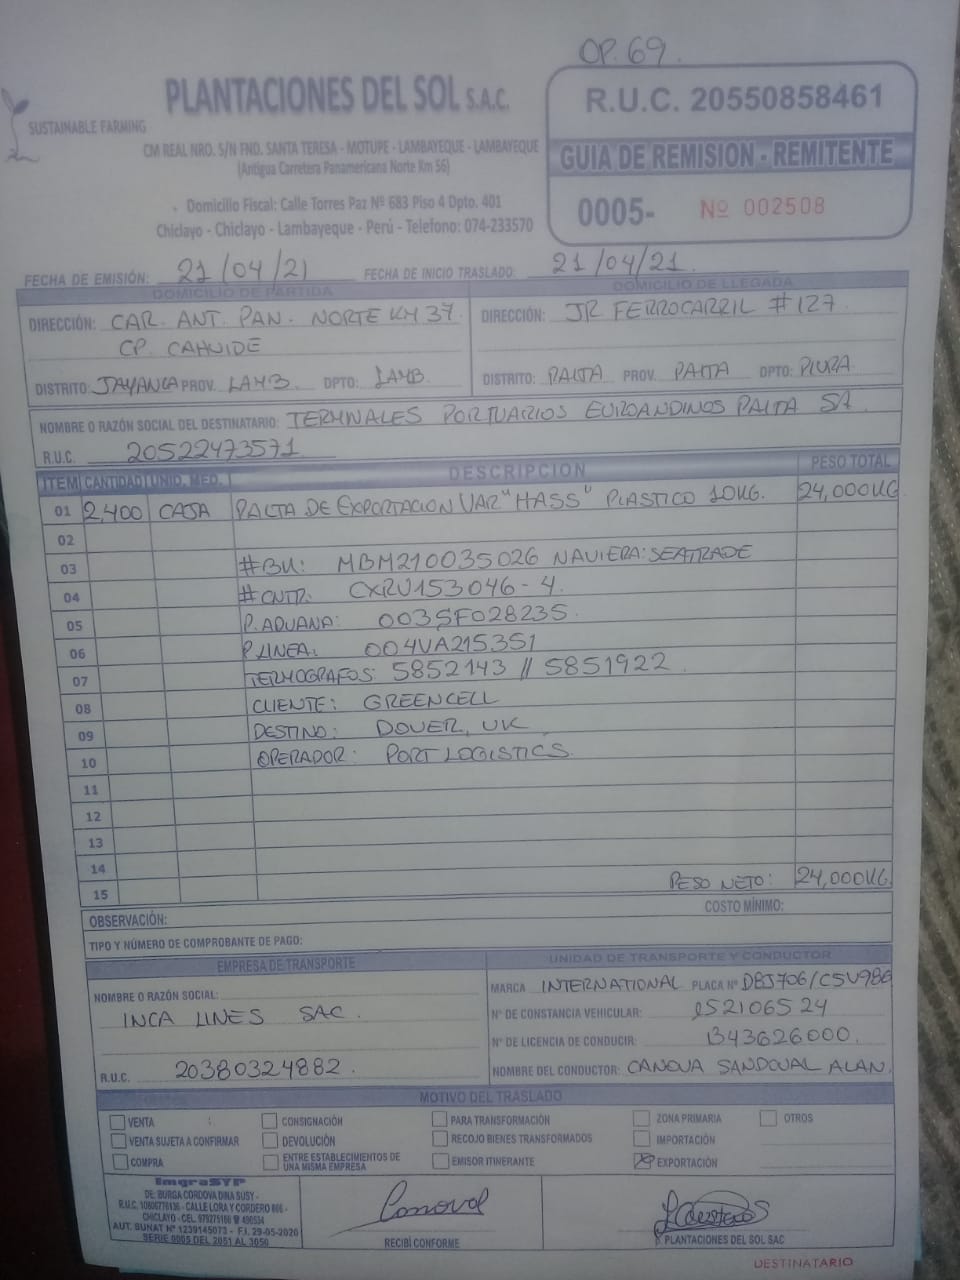 OP. 69.
SUSTAINABLE FARMING
PLANTACIONES DEL SOL S.A.C.
CM REAL NRO. S/N FND. SANTA TERESA - MOTUPE - LAMBAYEQUE - LAMBAYEQUE
(Antigua Carretera Panamericana Norte Km 56)
Domicilio Fiscal: Calle Torres Paz Nº 683 Piso 4 Dpto. 401
Chiclayo - Chiclayo - Lambayeque - Perú - Telefono: 074-233570
R.U.C. 20550858461
GUIA DE REMISION - REMITENTE
0005- Nº 002508
FECHA DE EMISIÓN: 21/04/21 FECHA DE INICIO TRASLADO: 21/04/21.
DOMICILIO DE PARTIDA
DIRECCIÓN: CAR. ANT. PAN. NORTE KM 37.
CP. CAHUIDE
DISTRITO: JAYANCA PROV. LAMB. DPTO: LAMB.
DOMICILIO DE LLEGADA
DIRECCIÓN: JR FERROCARRIL #127.
DISTRITO: PAITA PROV. PAITA DPTO: PIURA.
NOMBRE O RAZÓN SOCIAL DEL DESTINATARIO: TERMINALES PORTUARIOS EUROANDINOS PAITA SA.
R.U.C. 20522473571
ITEM CANTIDAD UNID. MED. DESCRIPCION PESO TOTAL
01 2,400 CAJA PALTA DE EXPORTACION VAR "HASS" PLASTICO 10KG. 24,000KG
02
03 #BK: MBM210035026 NAVIERA: SEATRADE
04 #CNTR: CXRU153046-4.
05 P. ADUANA: 003SF028235.
06 P. LINEA: 004VA215351
07 TERMOGRAFOS: 5852143 // 5851922.
08 CLIENTE: GREENCELL
09 DESTINO: DOVER, UK
10 OPERADOR: PORT LOGISTICS.
11
12
13
14
15 PESO NETO: 24,000KG
OBSERVACIÓN: COSTO MÍNIMO:
TIPO Y NÚMERO DE COMPROBANTE DE PAGO:
EMPRESA DE TRANSPORTE
NOMBRE O RAZÓN SOCIAL:
INCA LINES SAC.
R.U.C. 20380324882.
UNIDAD DE TRANSPORTE Y CONDUCTOR
MARCA INTERNATIONAL PLACA Nº D8J706/C5V986
Nº DE CONSTANCIA VEHICULAR: 152106524
Nº DE LICENCIA DE CONDUCIR: B43626000.
NOMBRE DEL CONDUCTOR: CANOVA SANDOVAL ALAN.
MOTIVO DEL TRASLADO
VENTA CONSIGNACIÓN PARA TRANSFORMACIÓN ZONA PRIMARIA OTROS
VENTA SUJETA A CONFIRMAR DEVOLUCIÓN RECOJO BIENES TRANSFORMADOS IMPORTACIÓN
COMPRA ENTRE ESTABLECIMIENTOS DE EMISOR ITINERANTE EXPORTACIÓN
UNA MISMA EMPRESA
ImgraSYP
DE: BURGA CORDOVA DINA SUSY -
CALLE LORA Y CORDERO
AUT. SUNAT Nº 1239145073 - F.I. 29-05-2020
SERIE 0005 DEL 2051 AL 3050
RECIBÍ CONFORME
P. PLANTACIONES DEL SOL SAC
DESTINATARIO